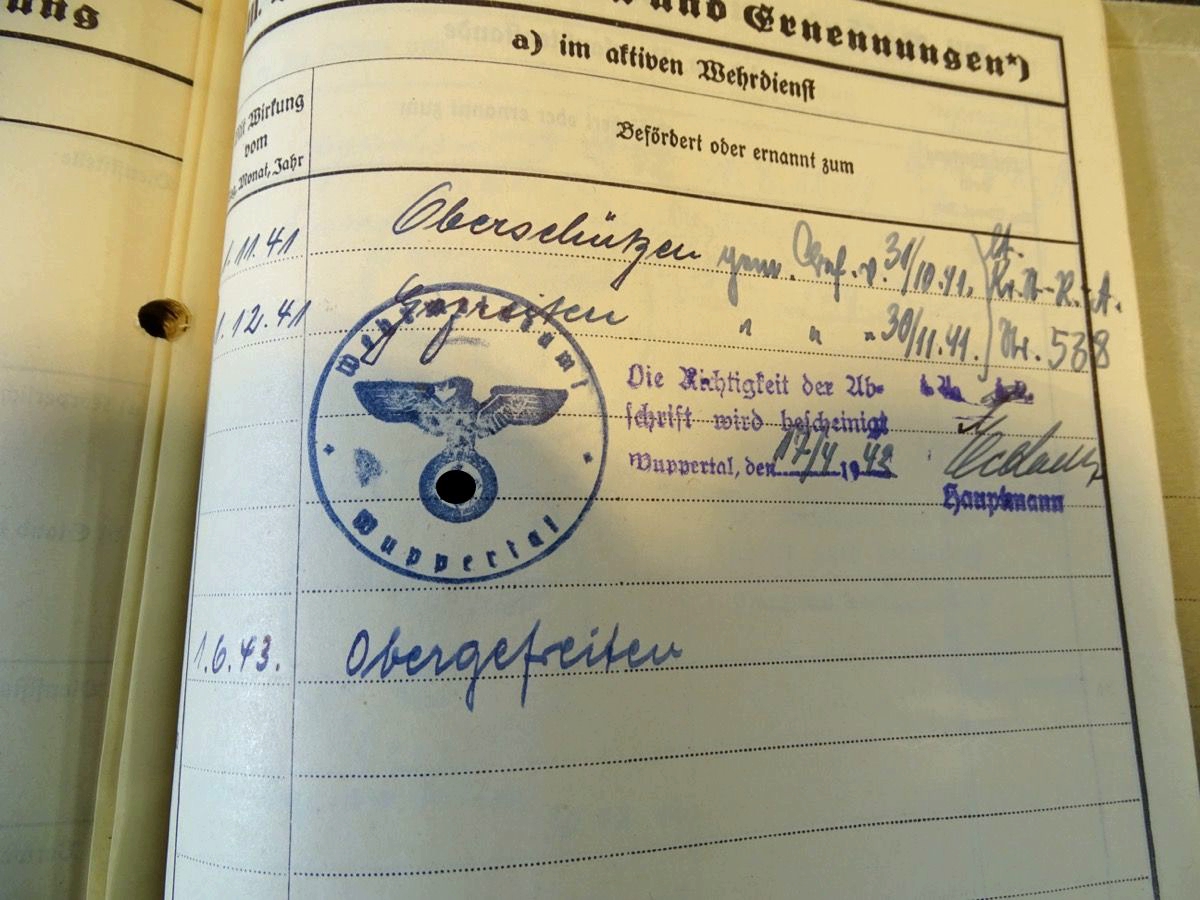 und Ernennungen*)
a) im aktiven Wehrdienst
Wirkung
vom
Monat, Jahr
Befördert oder ernannt zum
1.11.41 Oberschützen gem. Verf. v. 31/10.41. lt.
Kr.St.-R.-A.
1.12.41 Gefreiten " " " 30/11.41. Nr. 538
Wehrbezirksamt
Wuppertal
Die Richtigkeit der Ab-
schrift wird bescheinigt
Wuppertal, den 17/4 1942
Hauptmann
1.6.43. Obergefreiten